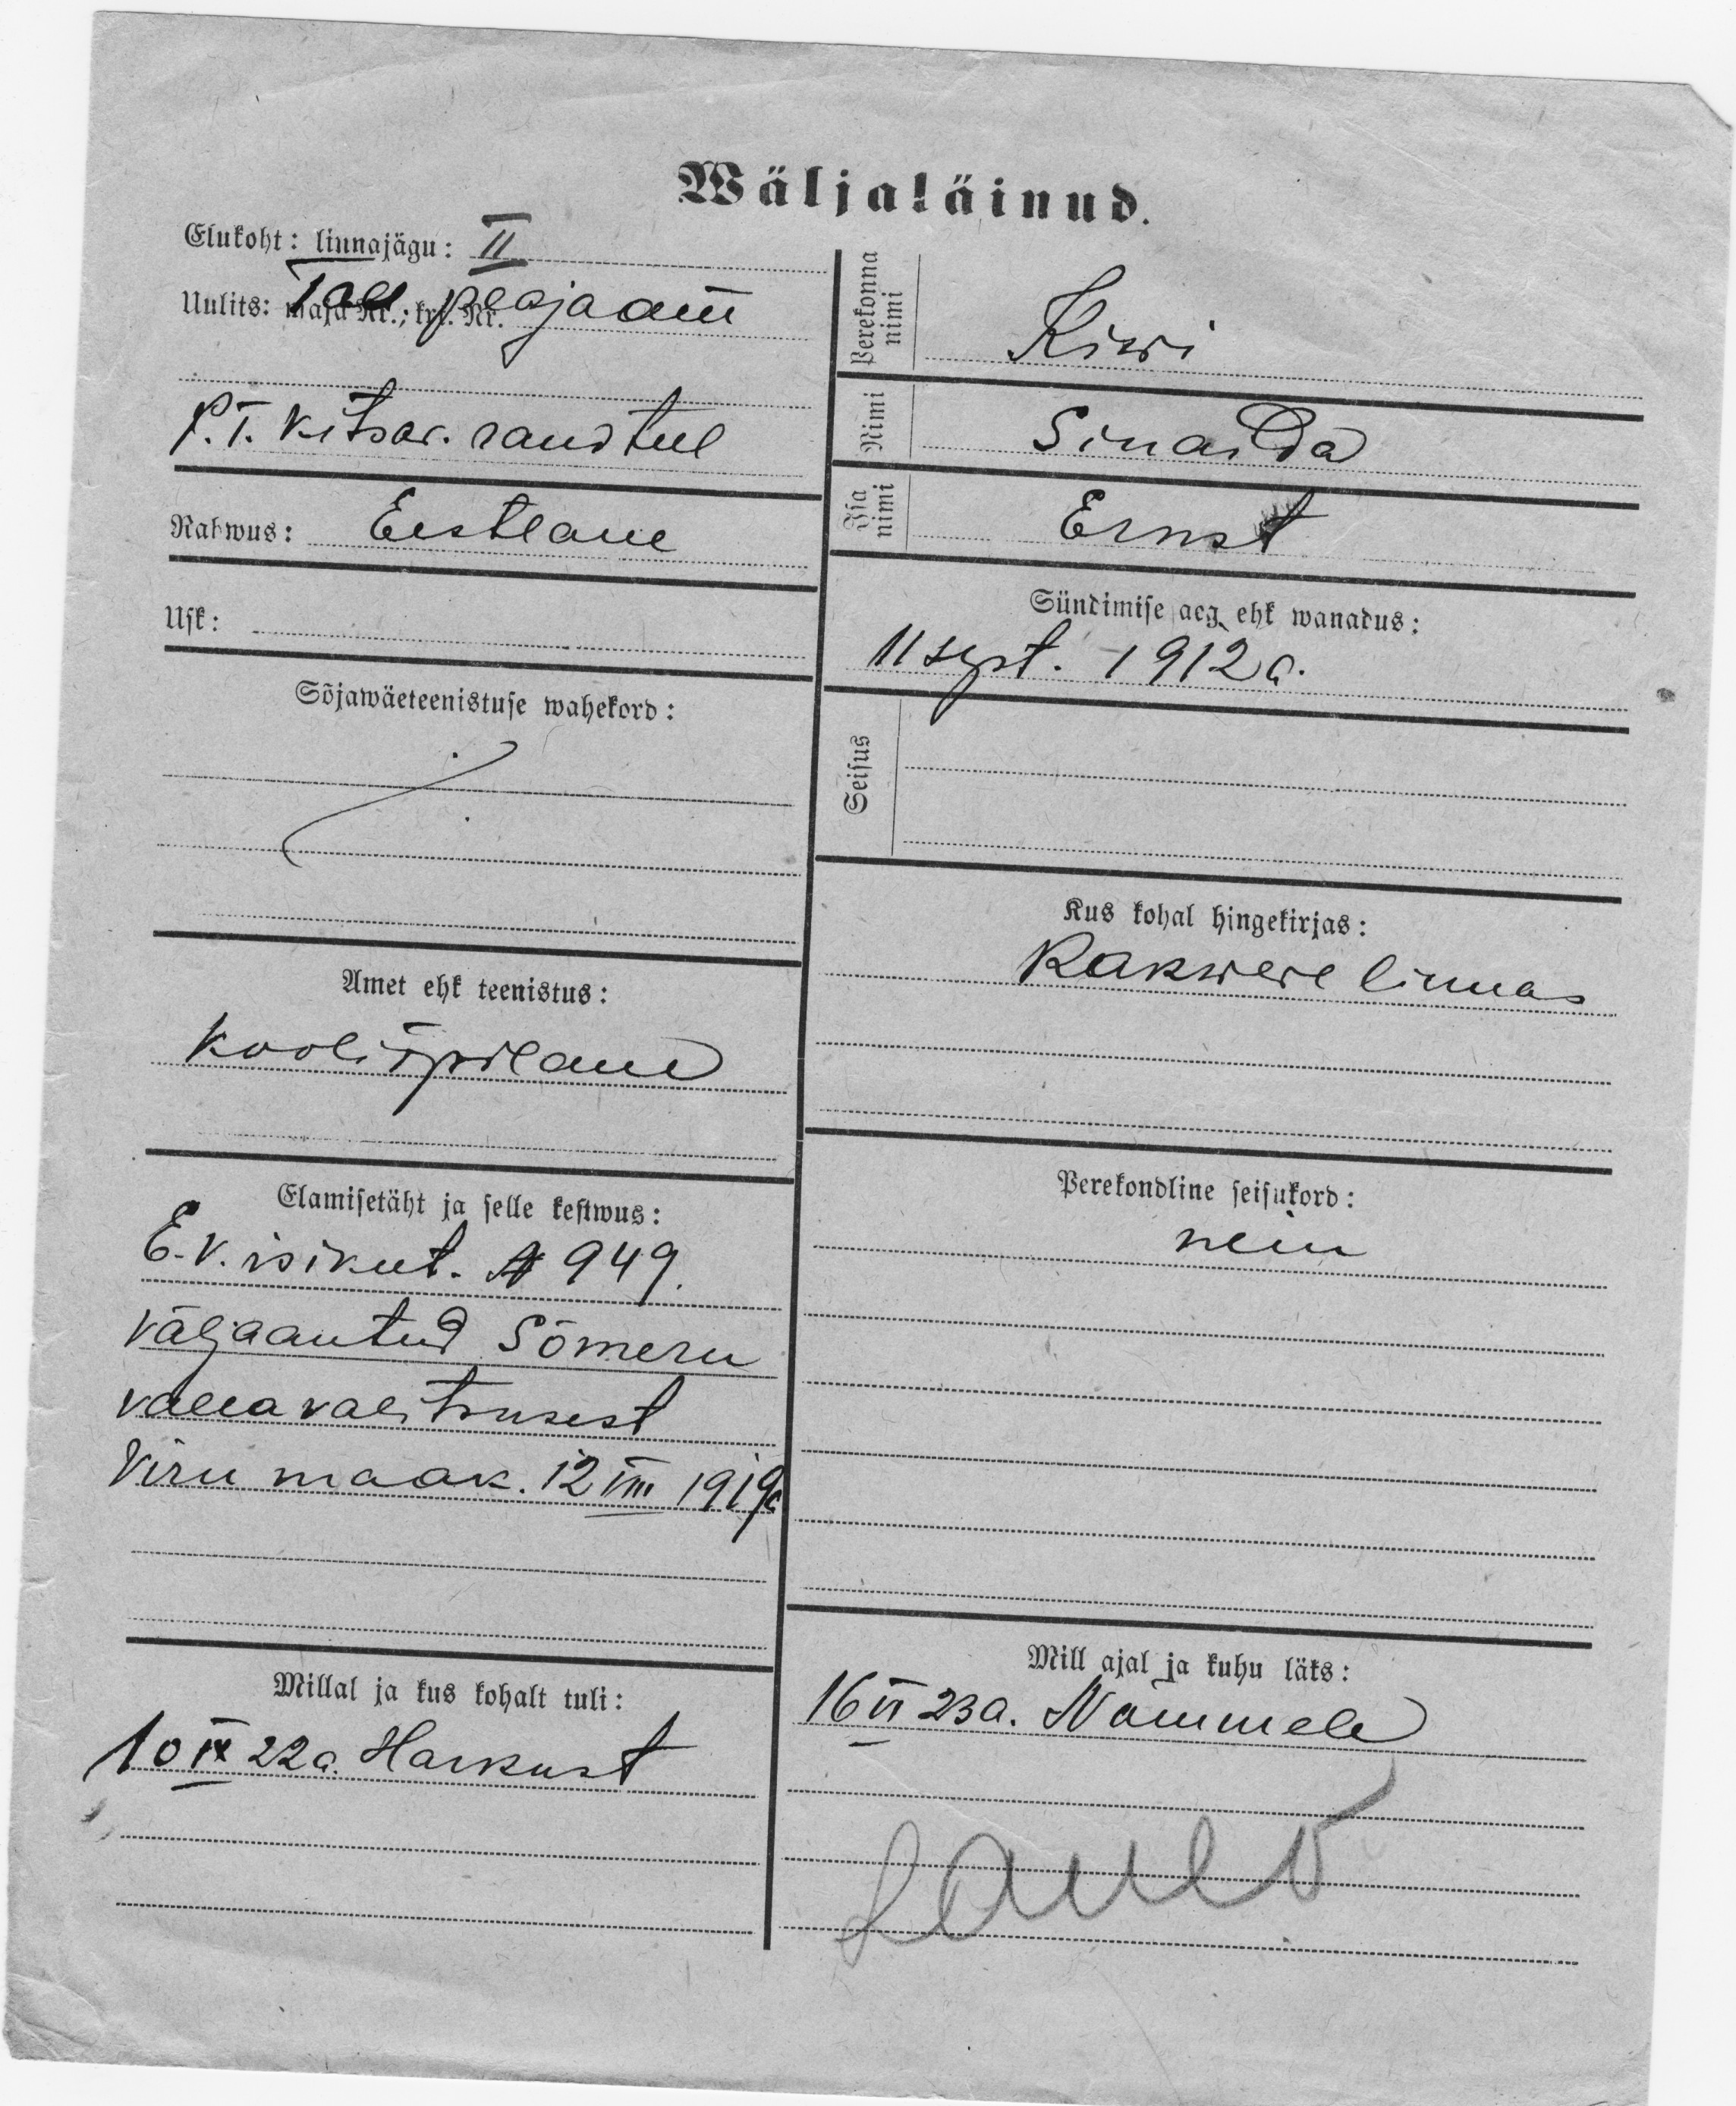 Wäljaläinud.
Elukoht: linnajägu: II
Uulits: maja Nr.; krt. Nr. Tall. peajaam
P.T. Kitsar. raudteel
Rahwus: Eestlane
Usk:
Sõjawäeteenistuse wahekord:
Amet ehk teenistus:
kooliõpilane
Elamisetäht ja selle kestwus:
E.V. isikut. № 949.
väljaantud Sõmeru
vallavalitsusest
Viru maak. 12 VIII 1919a
Millal ja kus kohalt tuli:
10 IX 22a. Harkust
Perekonna
nimi
Kiwi
Nimi
Sinaida
Isa
nimi
Ernst
Sündimise aeg ehk wanadus:
11 sept. 1912a.
Seisus
Kus kohal hingekirjas:
Rakwere linnas
Perekondline seisukord:
neiu
Mill ajal ja kuhu läks:
16 VI 23a. Nõmmele